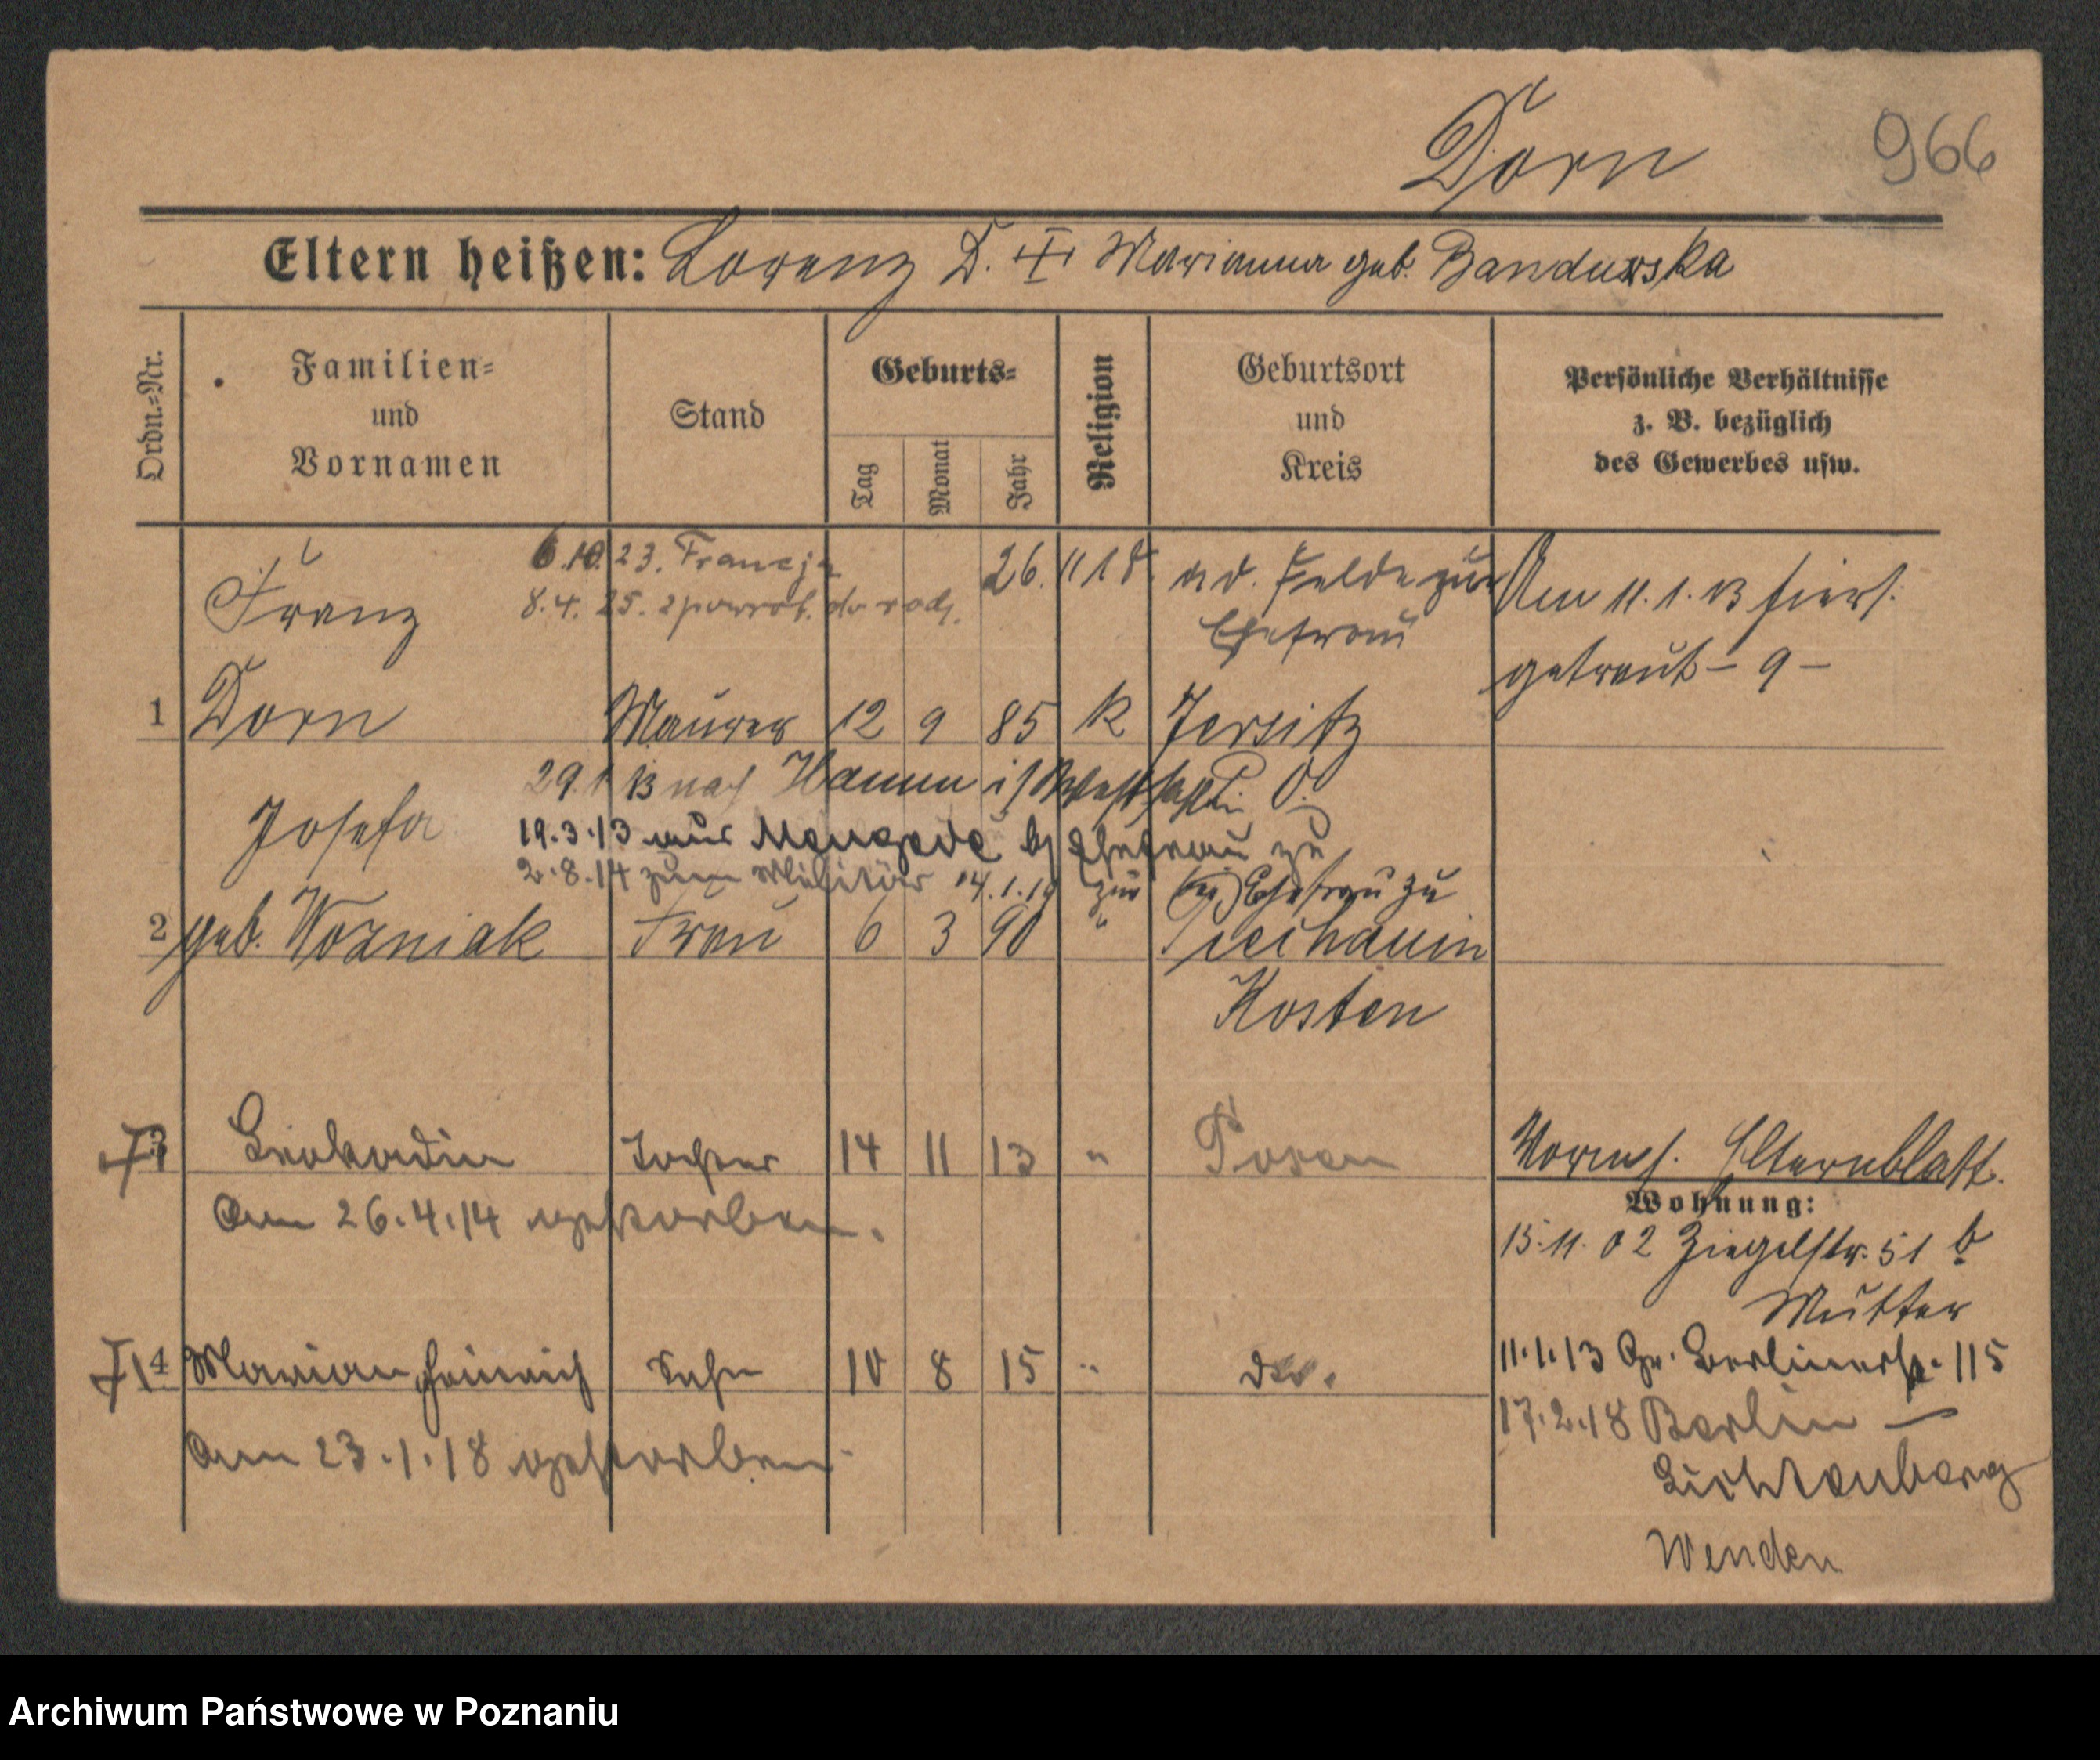 Dorn 966
Eltern heißen: Lorenz D. Marianna geb. Bandurska
Ordn.=Nr. Familien= und Vornamen Stand Geburts= Tag Monat Jahr Religion Geburtsort und Kreis Persönliche Verhältnisse z. B. bezüglich des Gewerbes usw.
6.10.23. Francja 26. 11 18. a d. Felde zur Am 11.1.13 hiers.
Franz 8.4.25. z powrot. do rodz. Ehefrau getraut – 9 –
1 Dorn Maurer 12 9 85 k Jersitz
29.1 13 nach Hamm i/ Westfahlen
Josefa 19.3.13 aus Mengede Ehefrau zu
2.8.14 zum Militär 14.1.19 zur Ehefrau zu
2 geb. Wozniak Frau 6 3 90 "
Kosten
3 Leokadia Tochter 14 11 13 " Posen Elternblatt.
Am 26.4.14 gestorben.
Wohnung:
15.11.02 Ziegelstr. 51 b
Mutter
4 Marian Heinrich Sohn 10 8 15 " do. 11.1.13 Gr. Berlinerstr. 115
Am 23.1.18 gestorben 17.2.18 Berlin –
Lichtenberg
Wenden
Archiwum Państwowe w Poznaniu